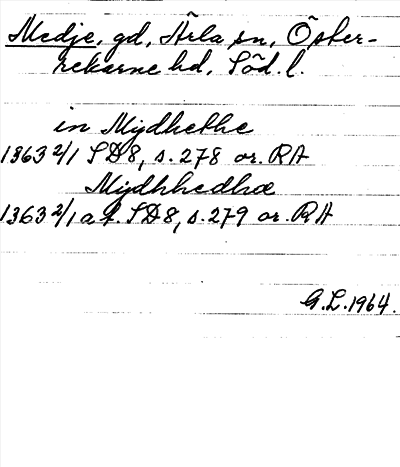 Medje, gd, Ärla sn, Öster-
rekarne hd, Söd. l.
in Mydhethe
1363 2/1 SD8, s. 278 or. RA
Mydhhedhæ
1363 2/1 a f. SD8, s. 279 or. RA
G.L. 1964.